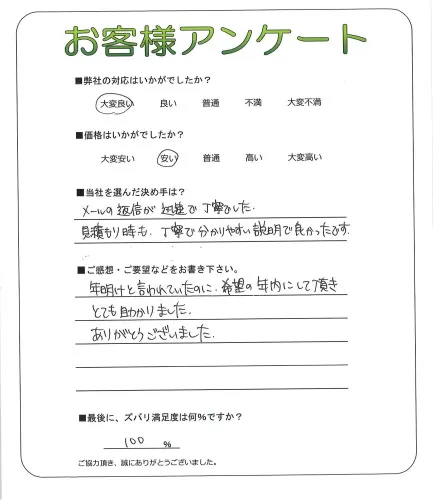 お客様アンケート
■弊社の対応はいかがでしたか？
大変良い 良い 普通 不満 大変不満
■価格はいかがでしたか？
大変安い 安い 普通 高い 大変高い
■当社を選んだ決め手は？
メールの返信が迅速で丁寧でした。
見積もり時も、丁寧で分かりやすい説明で良かったです
■ご感想・ご要望などをお書き下さい。
年明けと言われていたのに、希望の年内にして頂き
とても助かりました。
ありがとうございました。
■最後に、ズバリ満足度は何％ですか？
100 ％
ご協力頂き、誠にありがとうございました。